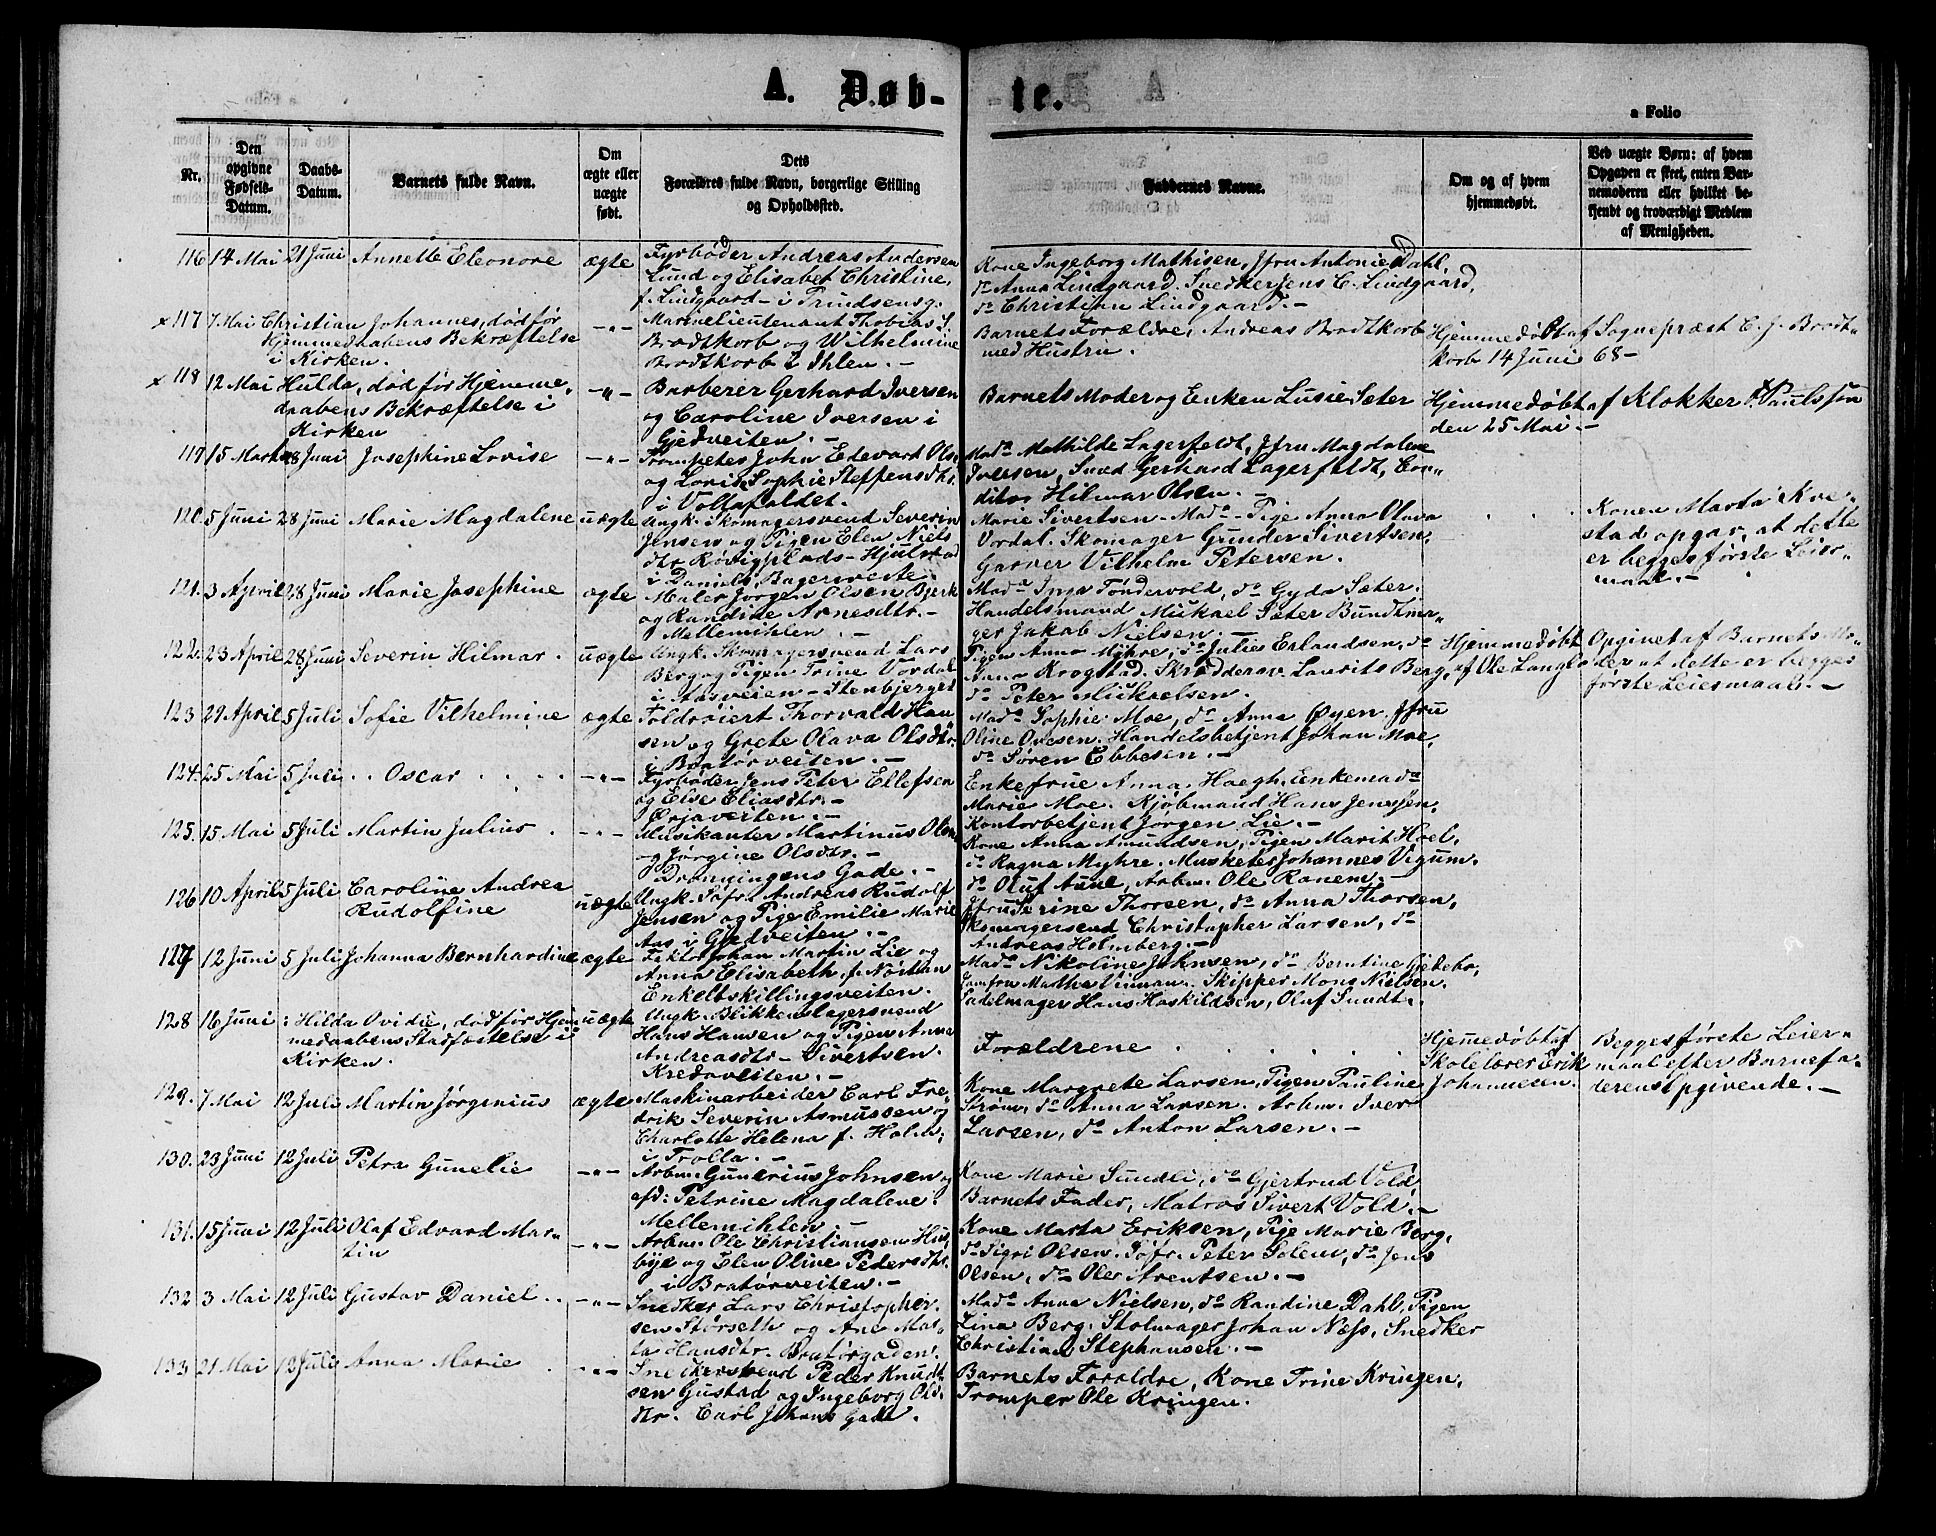 A. Døb-
-te.
a Folio
Nr.
Den opgivne Fødsels-Datum.
Daabs-Datum.
Barnets fulde Navn.
Om ægte eller uægte født.
Dets Forældres fulde Navn, borgerlige Stilling og Opholdssted.
Faddernes Navne.
Om og af hvem hjemmedøbt.
Ved uægte Børn: af hvem Opgaven er skeet, enten Barnemoderen eller hvilket bekjendt og troværdigt Medlem af Menigheden.
116 14 Mai 21 Juni Annette Eleonore ægte Fyrbøder Andreas Andersen
Lund og Elisabet Christine,
f. Lindgaard - i Prindsensg.
Kone Ingeborg Mathisen, Jfru Antonie Dahl,
do Anna Lindgaard. Snedker Jens C. Lindgaard,
do Christian Lindgaard. -
x 117 7 Mai Christian Johannes, død før
Hjemmedaabens Bekræftelse
i Kirken.
-"- Marinelieutenant Thobias S.
Brodtkorb og Wilhelmine
Brodtkorb i Ihlen. -
Barnets Forældre, Andreas Brodtkorb
med Hustru.
Hjemmedøbt af Sognepræst C. J. Brodt-
korb 14 Juni 68 -
x 118 12 Mai Hulda, død før Hjemme-
daabens Bekræftelse i
Kirken
-"- Barberer Gerhard Iversen
og Caroline Iversen i
Gjedveiten. -
Barnets Moder og Enken Lusie Sæter
Hjemmedøbt af Klokker F. Paulsson
den 25 Mai -
119 15 Marts 28 Juni Josephine Lovise -"- Trompeter John Edevard Ols.
og Lovise Sophie Steffensdtr.
i Vollafaldet.
Mado Mathilde Lagerfeldt, Jfru Magdalene
Iversen, Svend Gerhard Lagerfeldt, Con-
ditor Hilmar Olsen. -
120. 5 Juni 28 Juni Marie Magdalene uægte Ungk. Skomagersvend Severin
Jensen og Pigen Elen Niels
dtr Røvigplads - Hjulstad
i Daniels Bagerveite.
Marie Sivertsen - Mado - Pige Anna Olava
Vordal. Skomager Gunder Sivertsen,
Garver Vilhelm Petersen.
Konen Marta Kve-
stad opgav, at dette
er begges første Leier-
maal. -
121. 3 April 28 Juni Marie Josephine ægte Maler Jørgen Olsen Bjerk
og Randine Arnesdtr. -
Mellemihlen. -
Mado Inga Tøndervold, do Gyda Sæter.
Handelsmand Mikael Sæter Bundtma-
ger Jakob Nielsen. -
122. 23 April 28 Juni Severin Hilmar. uægte Ungk. Skomagersvend Lars
Berg og Pigen Trine Vordal
i Aasveien - Stenbjerget
Pigen Anna Myhre, do Julies Erlandsen, do
Anna Krogstad. Skrædderov. Laurits Berg,
do Peter Mikaelsen.
Hjemmedøbt
af Ole Lange
Opgivet af Barnets Mo-
der at dette er begges
første Leiermaal. -
123 29 April 5 Juli Sofie Vilhelmine ægte Toldroiert Thorvald Han
sen og Grete Olava Olsdtr.
i Bratørveiten. -
Mado Sophie Moe, do Anna Øyen Jfru
Oline Ovesen. Handelsbetjent Johan Moe,
do Søren Ebbesen -
124. 25 Mai 5 Juli Oscar -"- Fyrbøder Jens Peter Ellefsen
og Else Eliasdtr. -
Ørjaveiten. -
Enkefrue Anna Høegh. Enkemado
Marie Moe. Kjøbmand Hans Jenssen,
Kontorbetjent Jørgen Lie. -
125. 15 Mai 5 Juli Martin Julius -"- Musikanter Martinus Olsn.
og Jørgine Olsdtr. -
Dronningens Gade. -
Kone Anna Amundsen, Pigen Marit Hoel,
do Ragna Myhre. Musketer Johannes Vigum.
do Oluf Aune, Arbm. Ole Ranem. -
126 10 April 5 Juli Caroline Andrea
Rudolfine
uægte Ungk. Søfr. Andreas Rudolf
Jensen og Pige Emilie Marie
Aas i Gjedveiten. -
Jfru Serine Thorsen, do Anna Thorsen,
Skomagersvend Christopher Larsen, do
Andreas Holmberg. -
127 12 Juni 5 Juli Johanna Bernhardine ægte Johan Martin Lie og
Anna Elisabeth f. Norman
Enkeltskillingsveiten.
Mado Nikoline Johnsen, do Berntine Gjetebo,
Jomfru Martha Vinman. Skipper Mons Nielsen.
Sadelmager Hans Haskildsen, Oluf Sundt.
128 16 Juni Hilda Ovidie, død før Hjem
medaabens Stadfæstelse i
Kirken.
uægte Ungk. Blikkenslagersvend
Hans Hansen og Pigen Anna
Andreasdtr - Sivertsen.
Kredoveiten. -
Forældrene
Hjemmedøbt af
Skolelærer Erik
Johannesen.
Begges første Leier-
maal efter Barnefa-
derens Opgivende. -
129. 7 Mai 12 Juli Martin Jørginius ægte Maskinarbeider Carl Fre-
drik Severin Asmussen og
Charlotte Helena f. Holm,
i Trolla. -
Kone Margrete Larsen, Pigen Pauline
Strøm, do Anna Larsen. Arbm. Iver
Larsen, do Anton Larsen. -
130. 23 Juni 12 Juli Petra Gunelie -"- Arbm. Gunerius Johnsen og
afd: Petrine Magdalene.
Mellemihlen -
Kone Marie Sundli, do Gjertrud Vold,
Barnets Fader, Matros Sivert Vold. -
131. 15 Juni 12 Juli Olaf Edvard Mar-
tin
-"- Arbm. Ole Christiansen Hus
bye og Elen Oline Pedersdtr.
i Bratørveiten. -
Kone Marta Eriksen, Pige Marie Berg,
do Sigri Olsen. Søfr. Peter Solem, do Jens
Olsen, do Ole Arentsen. -
132. 3 Mai 12 Juli Gustav Daniel -"- Snedker Lars Christopher-
sen Størseth og Ane Mar-
ta Hansdtr. Bratørgaden.
Mado Anna Nielsen, do Randine Dahl, Pigen
Lina Berg. Stolmager Johan Næss, Snedker
Christian Stephansen. -
133 21 Mai 12 Juli Anna Marie -"- Snedkersvend Peder Knudt
sen Gustad og Ingeborg Ols
dtr. Carl Johans Gade.
Barnets Forældre, Kone Trine Kringen,
Tromper Ole Kringen.